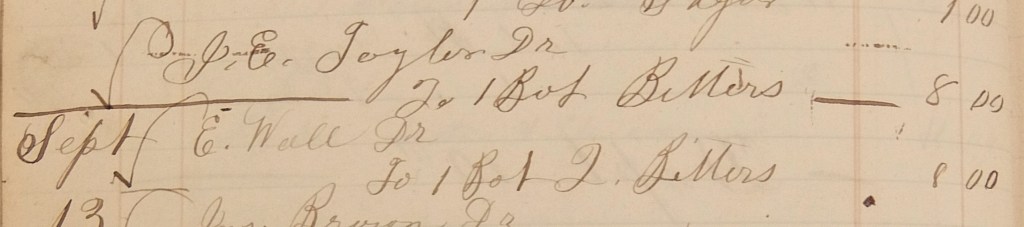 1 00
J. E. Taylor Dr
To 1 Bot Bitters 8 00
Sept E. Wall Dr
To 1 Bot Q. Bitters 8 00
13 Brown